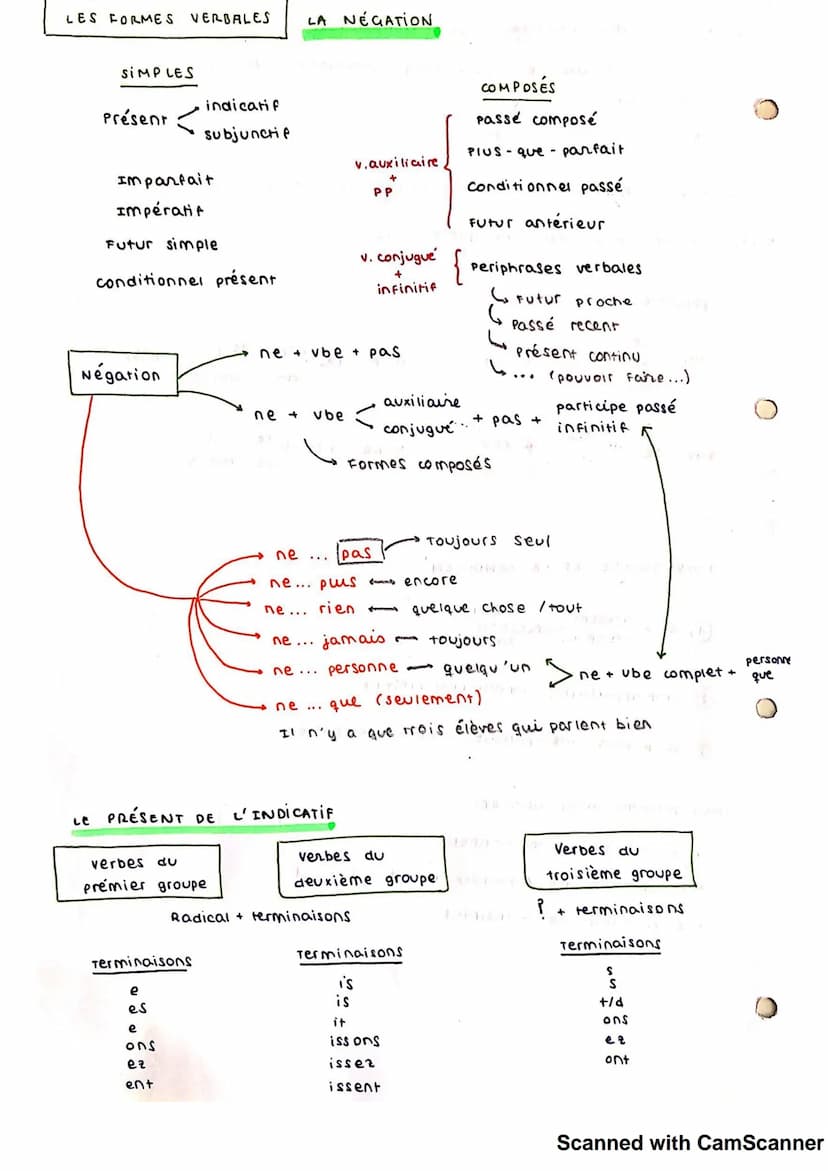 LES FORMES VERBALES
LA NÉGATION
SIMPLES
Présent
indicatif
subjunctif
Imparfait
Impératif
Futur simple
Conditionnel présent
COMPOSÉS
v.auxiliaire
+
PP
Passé composé
Plus-que-parfait
Conditionnel passé
Futur antérieur
v. conjugué
+
infinitif
Periphrases verbales
Futur proche
Passé recent
Présent continu
... (pouvoir faire...)
Négation
ne + vbe + pas
ne + vbe
auxiliaire
conjugué
+ pas +
participe passé
infinitif
Formes composés
ne ... pas
Toujours seul
ne... plus
encore
ne... rien
quelque chose / tout
ne... jamais
toujours
ne... personne
quelqu'un
ne + vbe complet +
personne
que
ne ... que (seulement)
Il n'y a que trois élèves qui parlent bien
Le PRÉSENT DE L'INDICATIF
verbes du
prémier groupe
verbes du
deuxième groupe
Verbes du
troisième groupe
Radical + terminaisons
? + terminaisons
Terminaisons
e
es
e
ons
ez
ent
Terminaisons
is
is
it
issons
issez
issent
Terminaisons
s
s
t/d
ons
ez
ont
Scanned with CamScanner